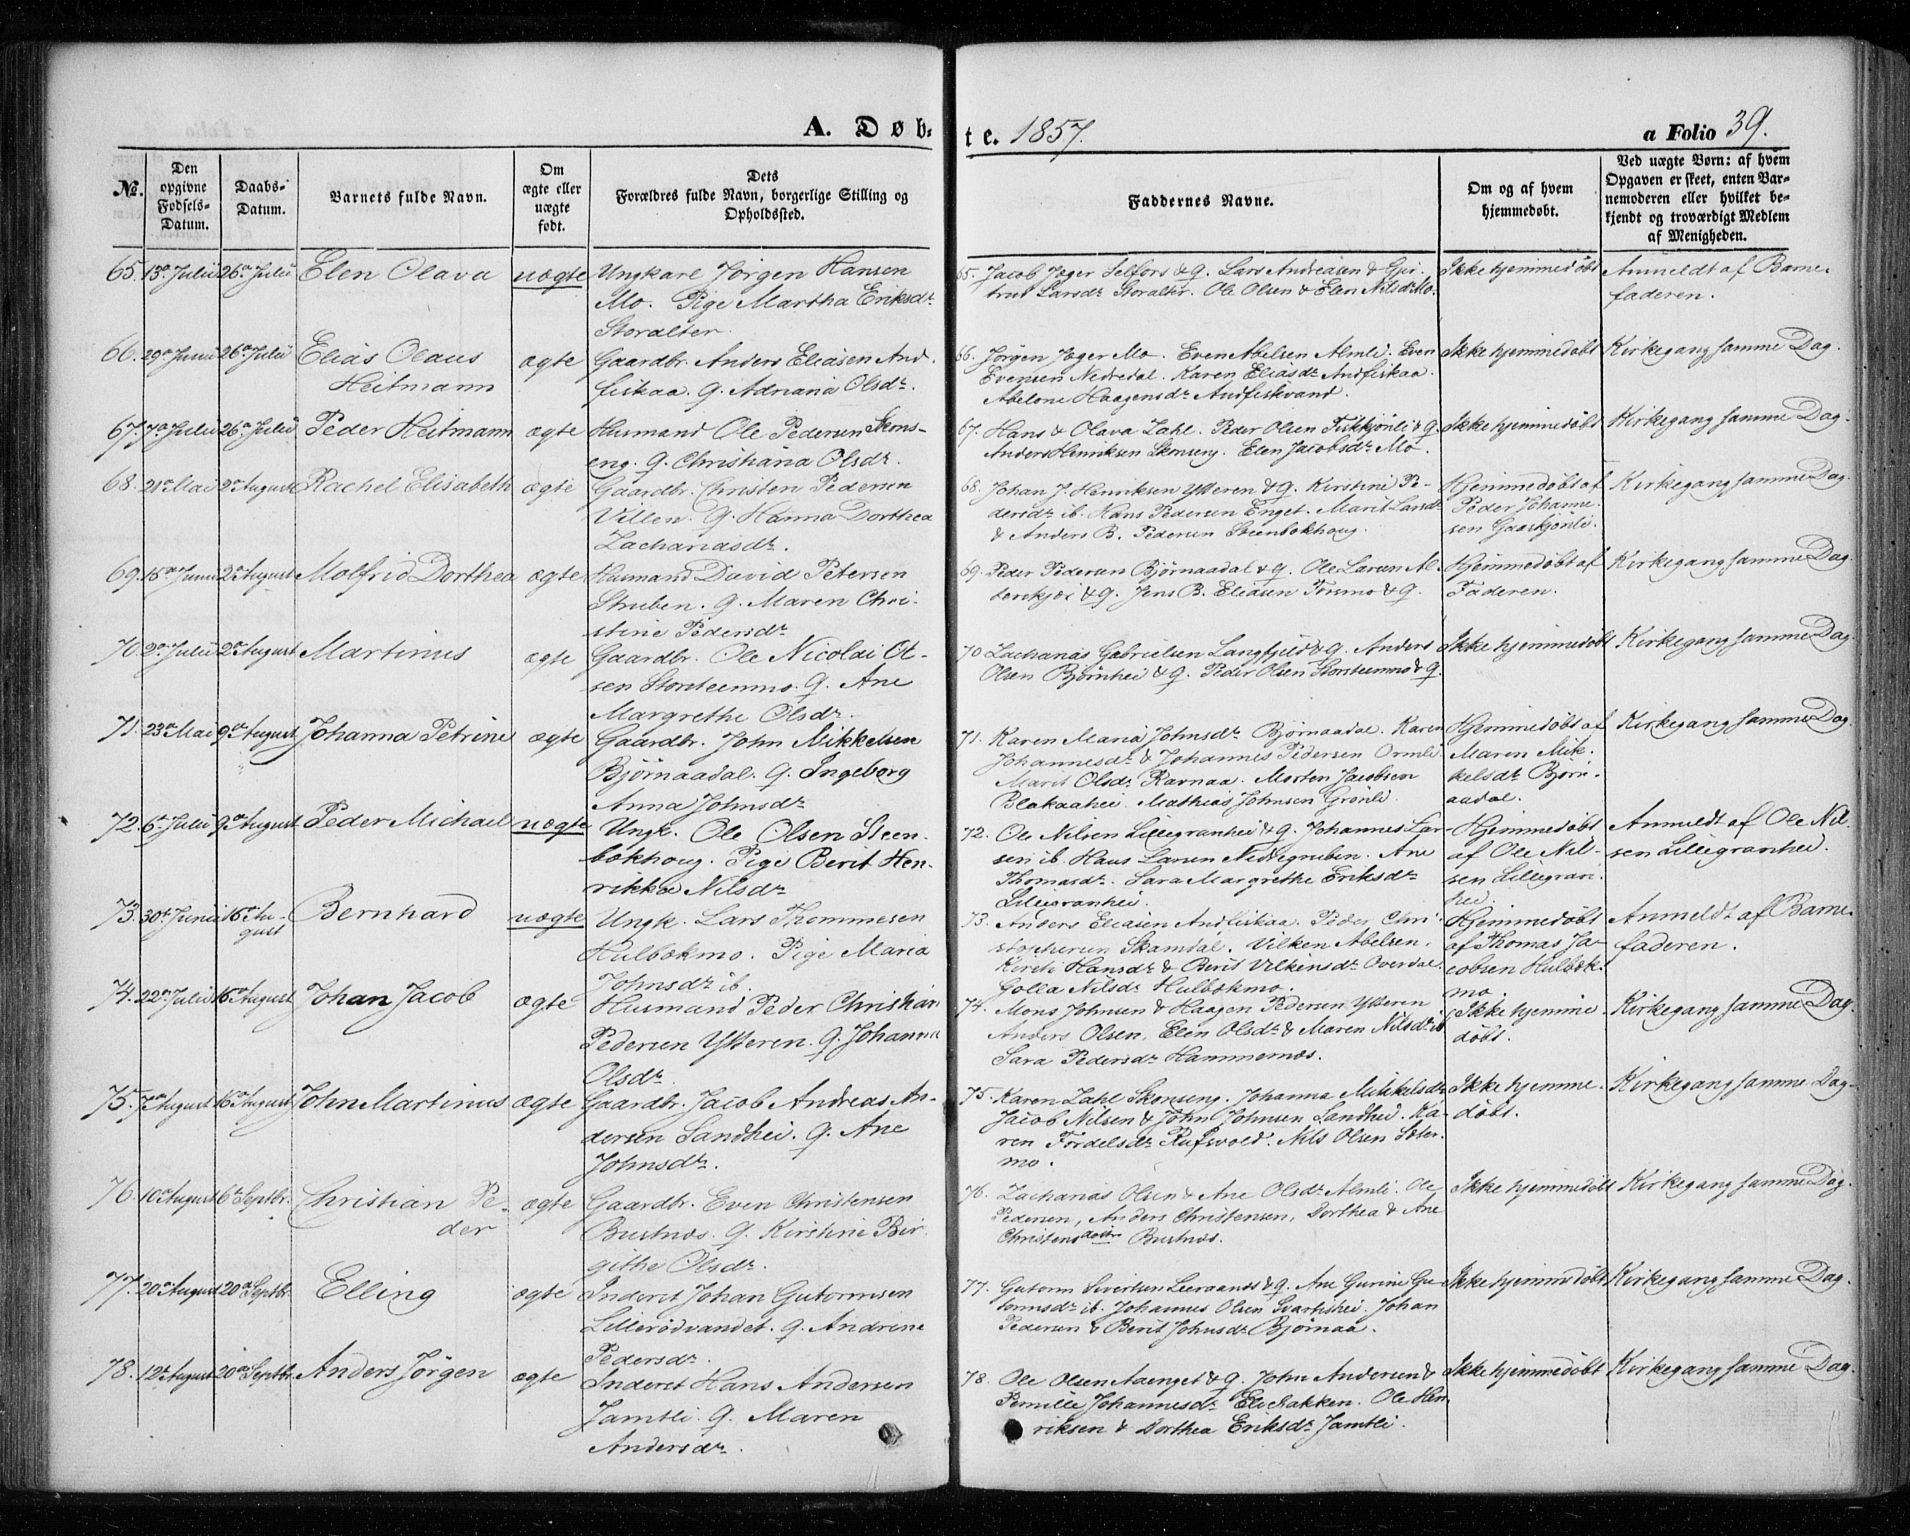 A. Døb-
te. 1857.
a Folio 39.
No.
Den opgivne Fødsels-Datum.
Daabs-Datum.
Barnets fulde Navn.
Om ægte eller uægte født.
Dets Forældres fulde Navn, borgerlige Stilling og Opholdssted.
Faddernes Navne.
Om og af hvem hjemmedøbt.
Ved uægte Børn: af hvem Opgaven er skeet, enten Barnemoderen eller hvilket bekjendt og troværdigt Medlem af Menigheden.
65. 13de Julii 26de Julii Elen Olava uægte Ungkarl Jørgen Hansen
Mo. Pige Martha Eriksdr
Storalter.
65. Jacob Jæger Selfors & Q. Lars Andreasen & Gjer-
trud Larsdr Storalter. Ole Olsen & Elen Nilsdr Mo.
Ikke hjemmedøbt
Anmeldt af Barne-
faderen.
66. 29de Junii 26de Julii Elias Olaus
Heitmann
ægte Gaardbr. Anders Eliasen And-
fiskaa. Q. Adriana Olsdr.
66. Jørgen Jæger Mo. Even Abelsen Almli. Even
Evensen Nedredal. Karen Eliasdr Andfiskaa.
Abelone Haagensdr Andfiskvand.
Ikke hjemmedøbt Kirkegang samme Dag.
67. 7de Julii 26de Julii Peder Heitmann ægte Husmand Ole Pedersen Skons-
eng. Q. Christiana Olsdr.
67. Hans & Olava Zahl. Peder Olsen & Q.
Anders Henriksen Skonseng. Elen Jacobsdr Mo.
Ikke hjemmedøbt Kirkegang samme Dag.
68. 21de Mai 2de August Rachel Elisabeth ægte Gaardbr. Christen Pedersen
Villen. Q. Hanna Dorthea
Zachariasdr.
68. Johan J. Henriksen Ytteren & Q. Kirstine Pe-
dersdr ib. Hans Pedersen Enget. Marit Larsdr
& Anders B. Pedersen Steenbekhoug.
Hjemmedøbt af
Peder Johanne-
sen Gaaskjønli.
Kirkegang samme Dag.
69. 15de Junii 2de August Molfrid Dorthea ægte Husmand David Petersen
Struben. Q. Maren Chri-
stine Pedersdr
69. Peder Pedersen Bjørnaadal & Q. Ole Larsen Al-
& Q. Jens B. Eliasen & Q.
Hjemmedøbt af
Faderen.
Kirkegang samme Dag.
70. 2de Julii 2de August Martinus ægte Gaardbr. Ole Nicolai Ol-
sen Storsteenmo. Q. Ane
Margrethe Olsdr.
70 Zacharias Gabrielsen Langfjeld & Q. Anders
Olsen Bjørnhei & Q. Peder Olsen Storsteenmo & Q.
Ikke hjemmedøbt Kirkegang samme Dag.
71. 23de Mai 9de August Johanna Petrine ægte Gaardbr. John Mikkelsen
Bjørnaadal. Q. Ingeborg
Anna Johnsdr
71. Karen Maria Johnsdr Bjørnaadal. Karen
Johannesdr & Johannes Pedersen Ormli.
Marit Olsdr Ravnaa. Morten Jacobsen
Blakaahei. Mathias Johnsen Grønli.
Hjemmedøbt af
Maren Mik-
kelsdr Bjørn-
aadal.
Kirkegang samme Dag.
72. 6te Julii 9de August Peder Michael uægte Ungk. Ole Olsen Steen-
bekhoug. Pige Berit Hen-
rikka Nilsdr
72. Ole Nilsen Lillegranhei & Q. Johannes Lar-
sen ib. Hans Larsen Nedregruben. Ane
Thomasdr. Sara Margrethe Eriksdr
Lillegranhei.
Hjemmedøbt
af Ole Nil-
sen Lillegran-
hei.
Anmeldt af Ole Nil-
sen Lillegranhei.
73. 30te Junii 16de Au-
gust
Bernhard uægte Ungk. Lars Thommesen
Hulbækmo. Pige Maria
Johnsdr ib.
73. Anders Eliasen Andfiskaa. Peder Chri-
stophersen Skamdal. Vilken Abelsen.
Hansdr & Berit Vilkensdr Overdal.
Golla Nilsdr Hulbækmo.
Hjemmedøbt
af Thomas Ja-
cobsen Hulbæk-
mo.
Anmeldt af Barne-
faderen.
74. 22de Julii 16de August Johan Jacob ægte Husmand Peder Christian
Pedersen Ytteren. Q. Johanna
Olsdr.
74. Mons Johnsen & Haagen Pedersen Ytteren
Anders Olsen, Elen Olsdr & Maren Nilsdr ib
Sara Pedersdr Hammernæs.
Ikke hjemme-
døbt.
Kirkegang samme Dag.
75. 7de August 16de August John Martinus ægte Gaardbr. Jacob Andreas An-
dersen Sandhei. Q. Ane
Johnsdr.
75. Karen Zahl Skonseng. Johanna Mikkelsdr
Jacob Nilsen & John Johnsen Sandhei. Ka-
ren Tordelsdr. Nils Olsen Sæter-
mo.
Ikke hjemme-
døbt.
Kirkegang samme Dag.
76. 10de August 6te Septbr. Christian Pe-
der
ægte Gaardbr. Even Christensen
Bustnæs. Q. Kirstine Bir-
githe Olsdr.
76. Zacharias Olsen & Ane Olsdr Almli. Ole
Pedersen, Anders Christensen, Dorthea & Ane
Christensdøttre Bustnæs.
Ikke hjemmedøbt Kirkegang samme Dag.
77. 20de August 20de Septbr. Elling ægte Inderst Johan Gutormsen
Lillerødvandet. Q. Andrine
Pedersdr.
77. Gutorm Sivertsen Leeraanæs & Q. Ane Gurine Gu-
tormsdr ib. Johannes Olsen Svartishei. Johan
Pedersen & Berit Johnsdr Bjørnaa.
Ikke hjemmedøbt Kirkegang samme Dag.
78. 12te August 20de Septbr. Anders Jørgen ægte Inderst Hans Andersen
Jamtli. Q. Maren
Andersdr.
78. Ole Olsen Aaenget & Q. John Andersen &
Pernille Johannesdr. Ole Hen-
riksen & Dorthea Eriksdr Jamtli.
Ikke hjemmedøbt Kirkegang samme Dag.